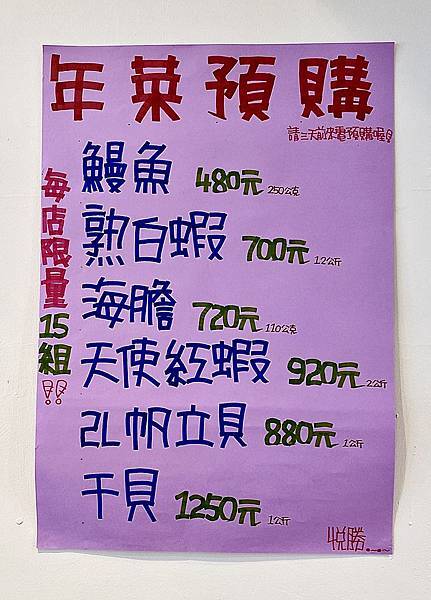 年菜預購
請三天前來電預購喔!
每店限量15組!!
鰻魚 480元 250公克
熟白蝦 700元 1.2公斤
海膽 720元 110公克
天使紅蝦 920元 2公斤
2L帆立貝 880元 1公斤
干貝 1250元 1公斤
悅勝